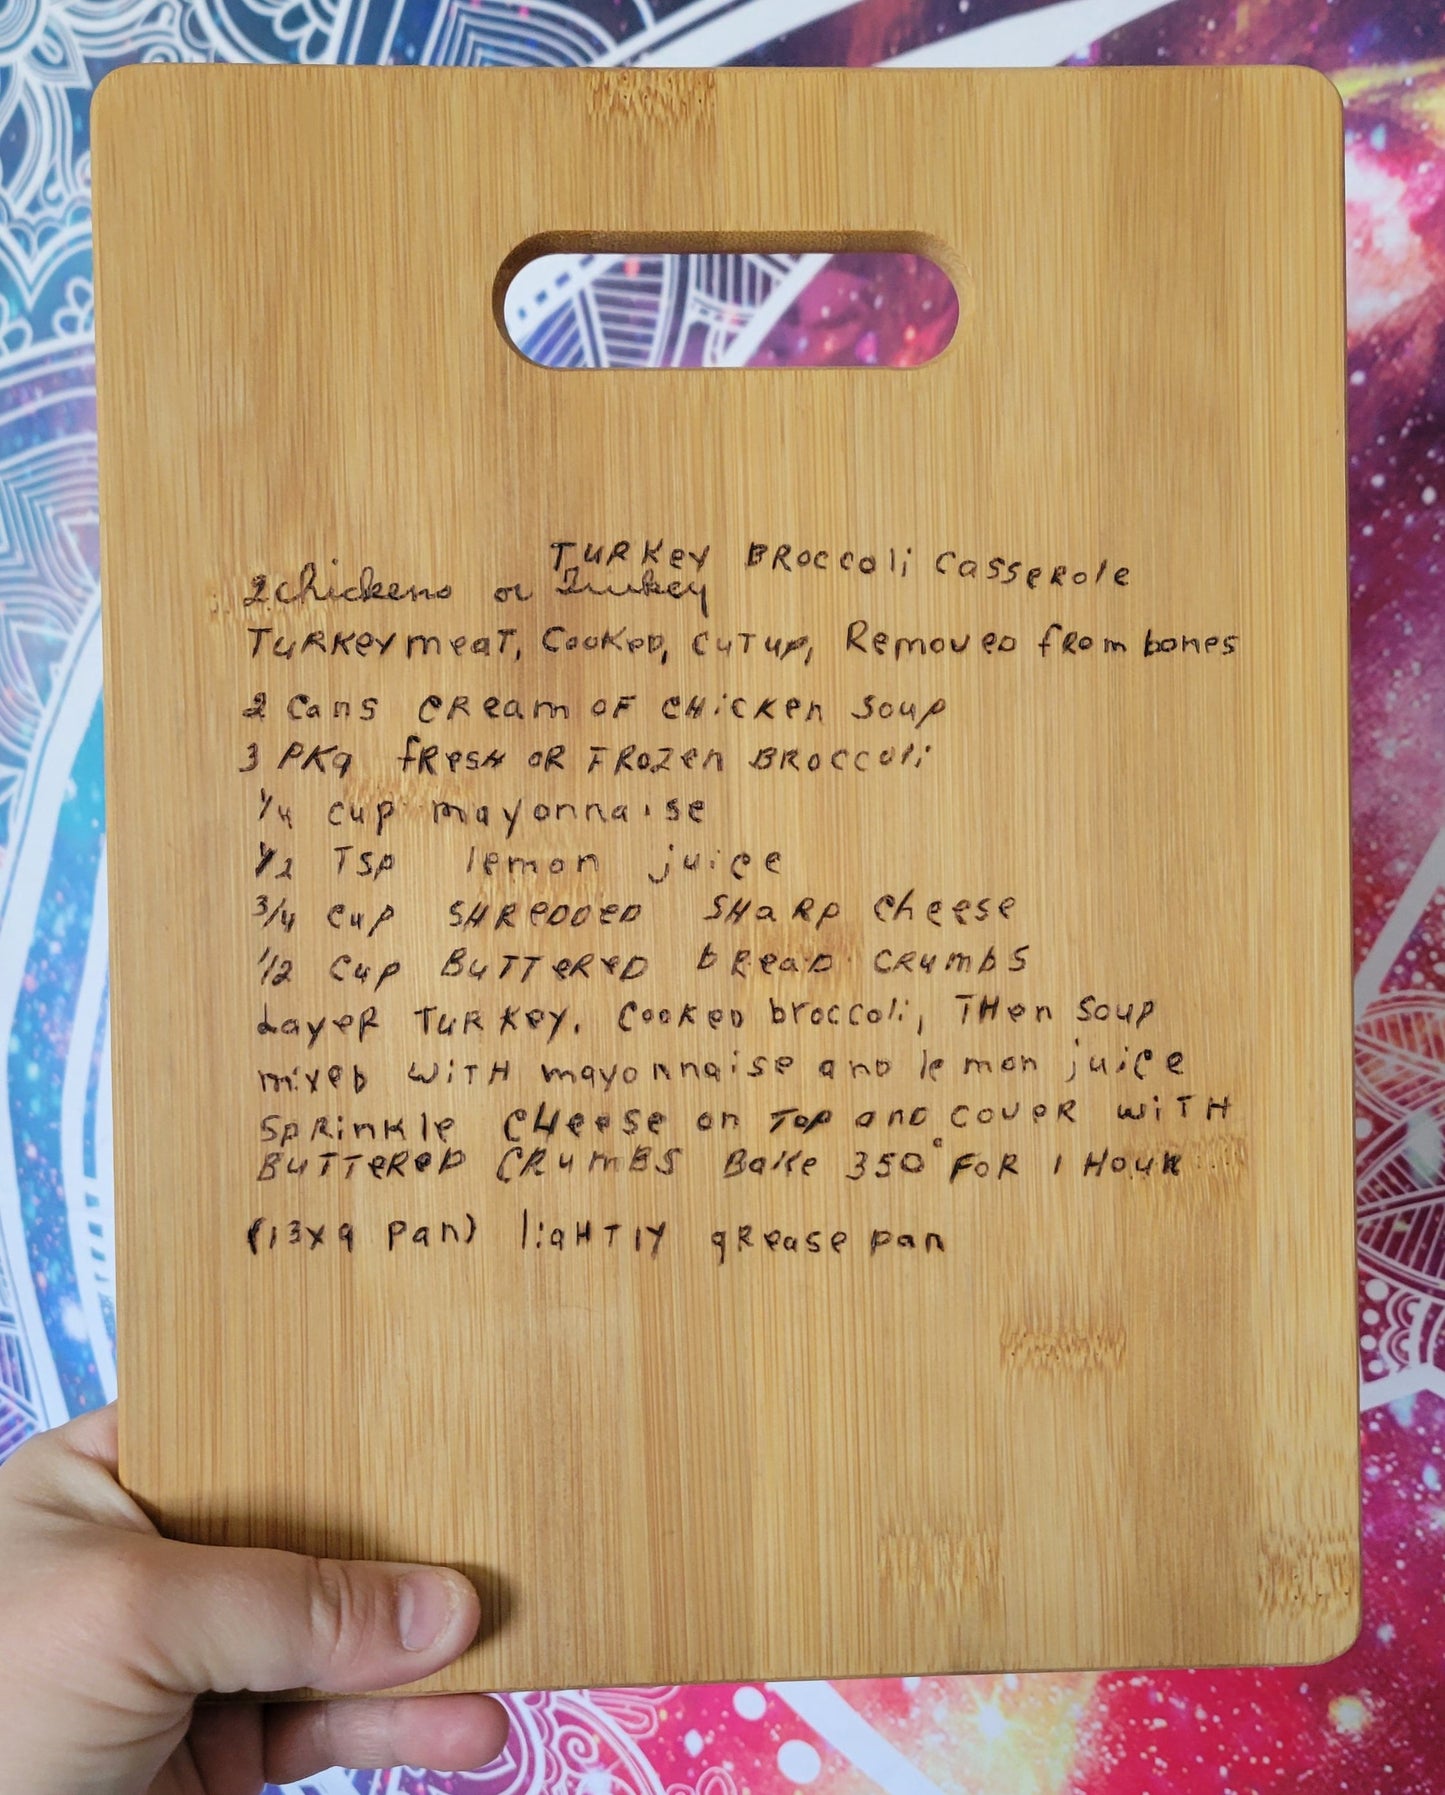 Turkey Broccoli Casserole
2 Chickens or Turkey
Turkey meat, Cooked, cut up, Removed from bones
2 Cans cream of chicken soup
3 PKg fresh or frozen Broccoli
1/4 cup mayonnaise
1/2 Tsp lemon juice
3/4 cup shredded sharp cheese
1/2 cup Buttered bread crumbs
Layer Turkey, Cooked broccoli, Then soup
mixed with mayonnaise and lemon juice
Sprinkle cheese on top and cover with
Buttered crumbs Bake 350° for 1 Hour
(13x9 pan) lightly grease pan